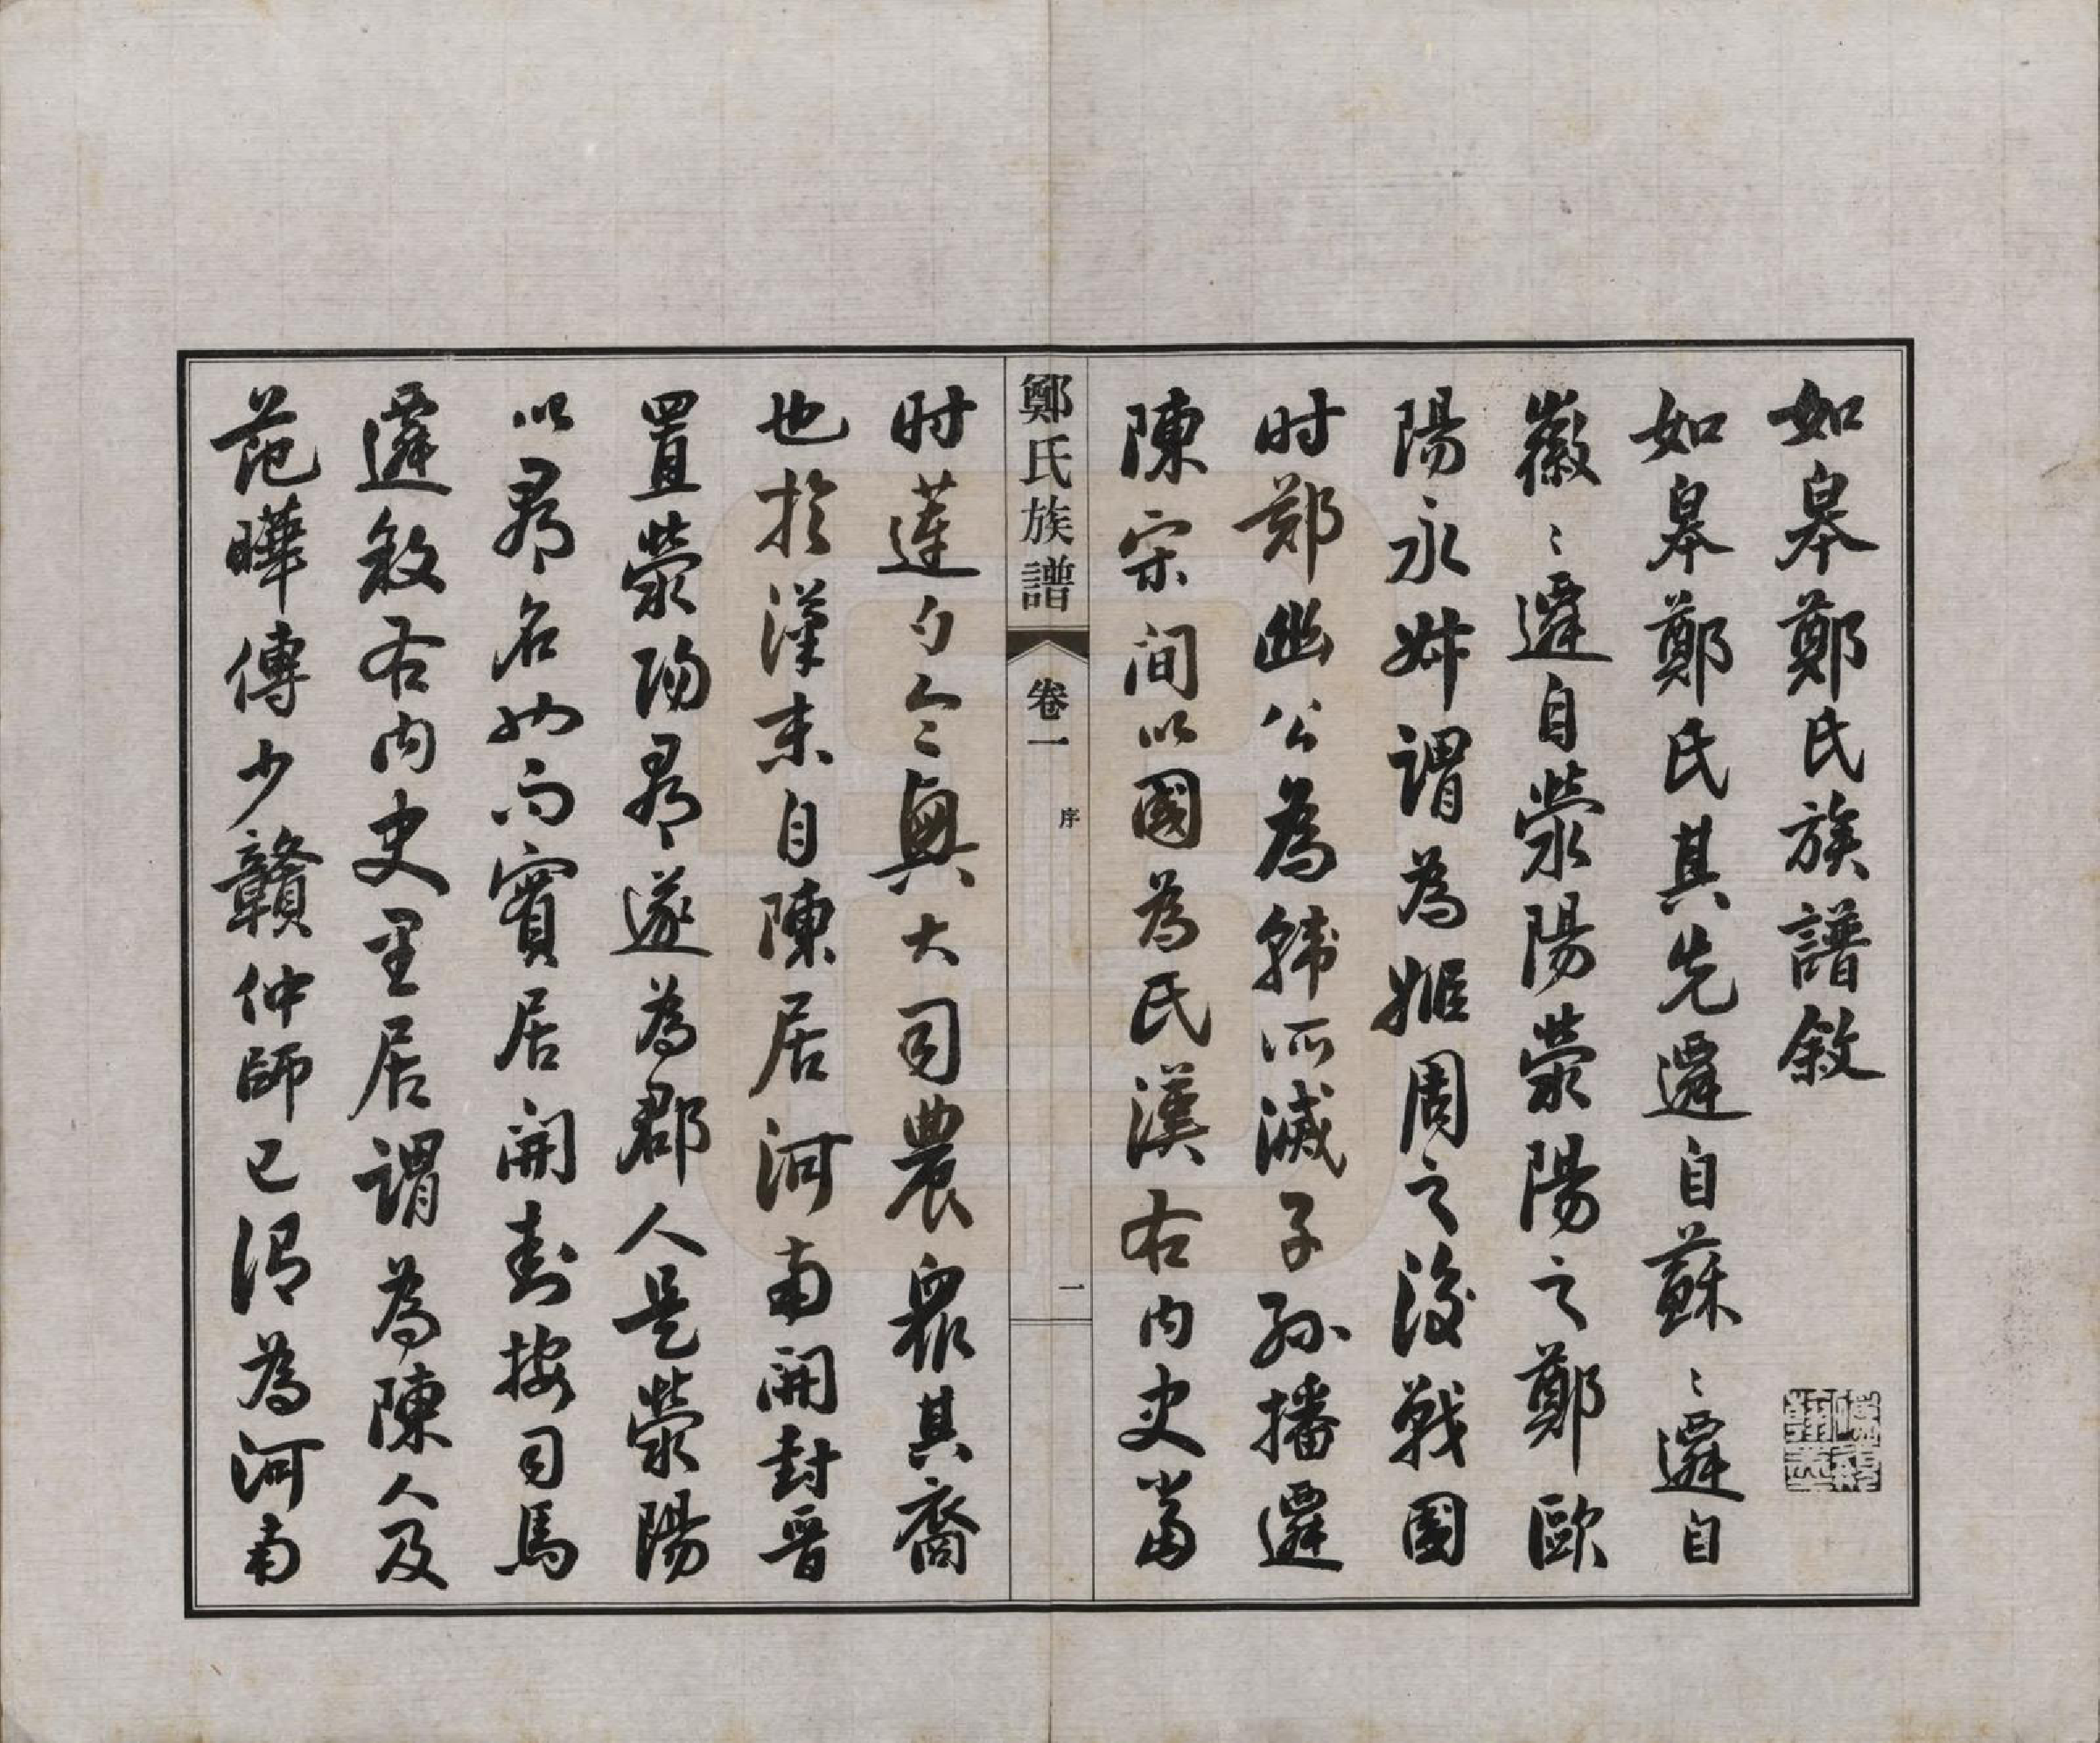 如皋鄭氏族譜敘
如皋鄭氏其先遷自蘇〻遷自
徽〻遷自滎陽滎陽之鄭歐
陽永叔謂為姬周之後戰國
时鄭幽公為韓所滅子孫播遷
陳宋间以國為氏漢右内史當
鄭氏族譜
卷一
序
一
时蓮勺令興大司農眾其裔
也於漢末自陳居河南開封晉
置滎陽郡遂為郡人是滎陽
以郡名如而實居開封按司馬
遷敘右内史里居謂為陳人及
范曄傳少贛仲師已謂為河南